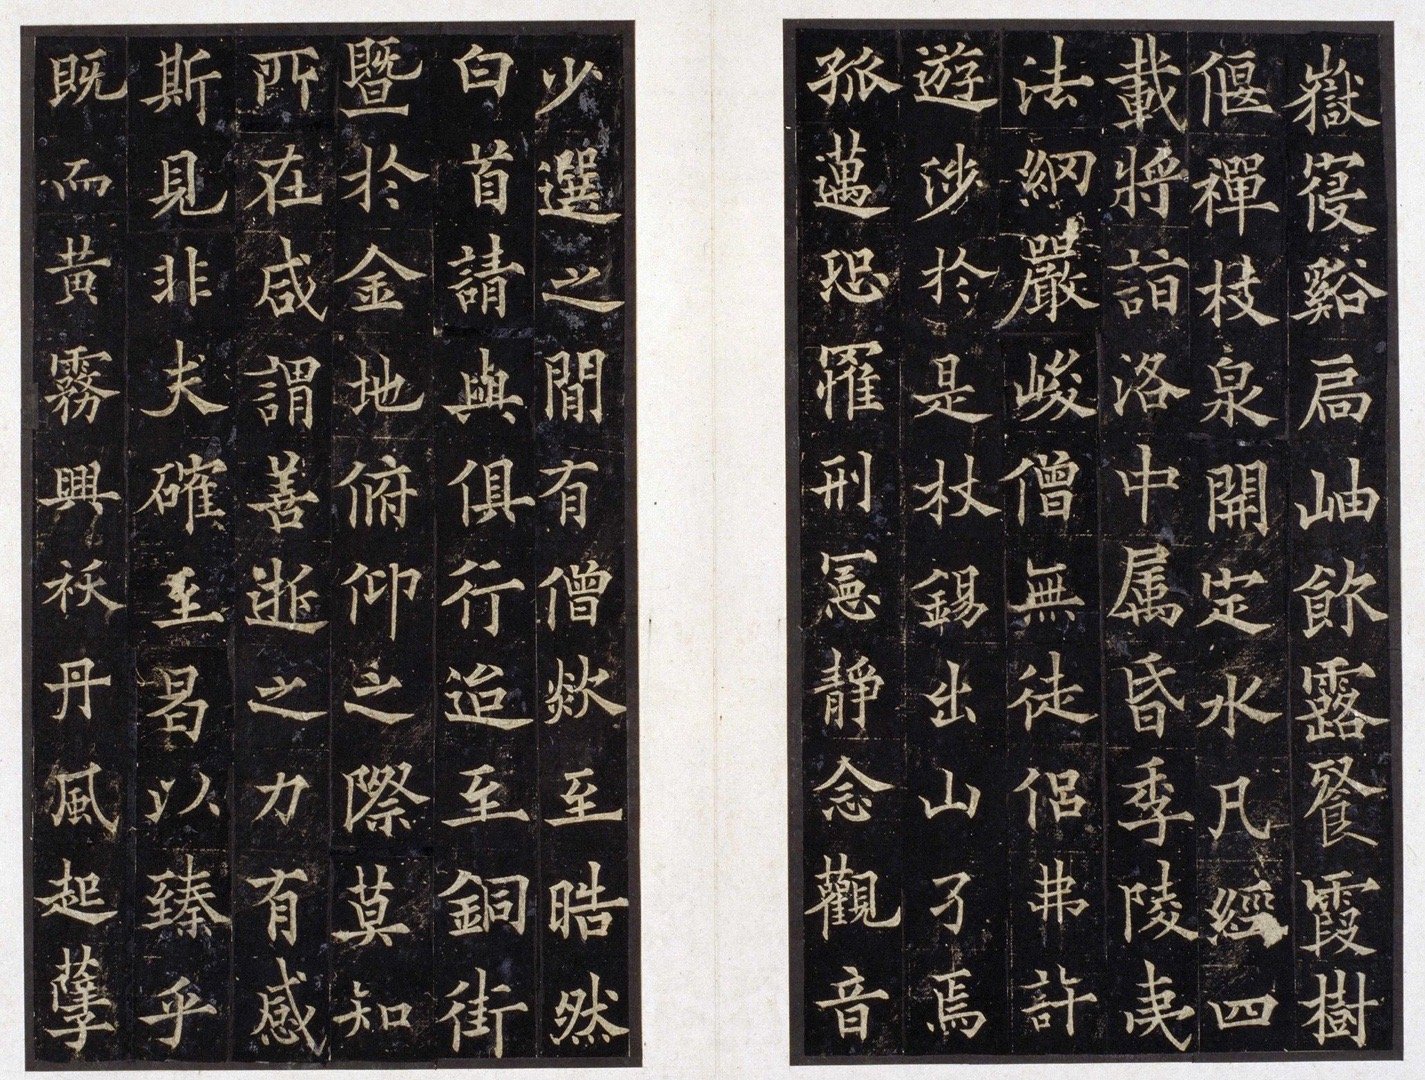 嶽寑谿局岫飲露飡霞樹
偃禪枝泉開定水凡經四
載將詣洛中属昏季陵夷
法綱嚴峻僧無徒侶弗許
遊涉於是杖錫出山了焉
孤邁恐罹刑憲靜念觀音
少選之間有僧欻至晧然
白首請與俱行迨至銅街
暨於金地俯仰之際莫知
所在咸謂善逝之力有感
斯見非夫確至曷以臻乎
既而黃霧興祅丹風起孽